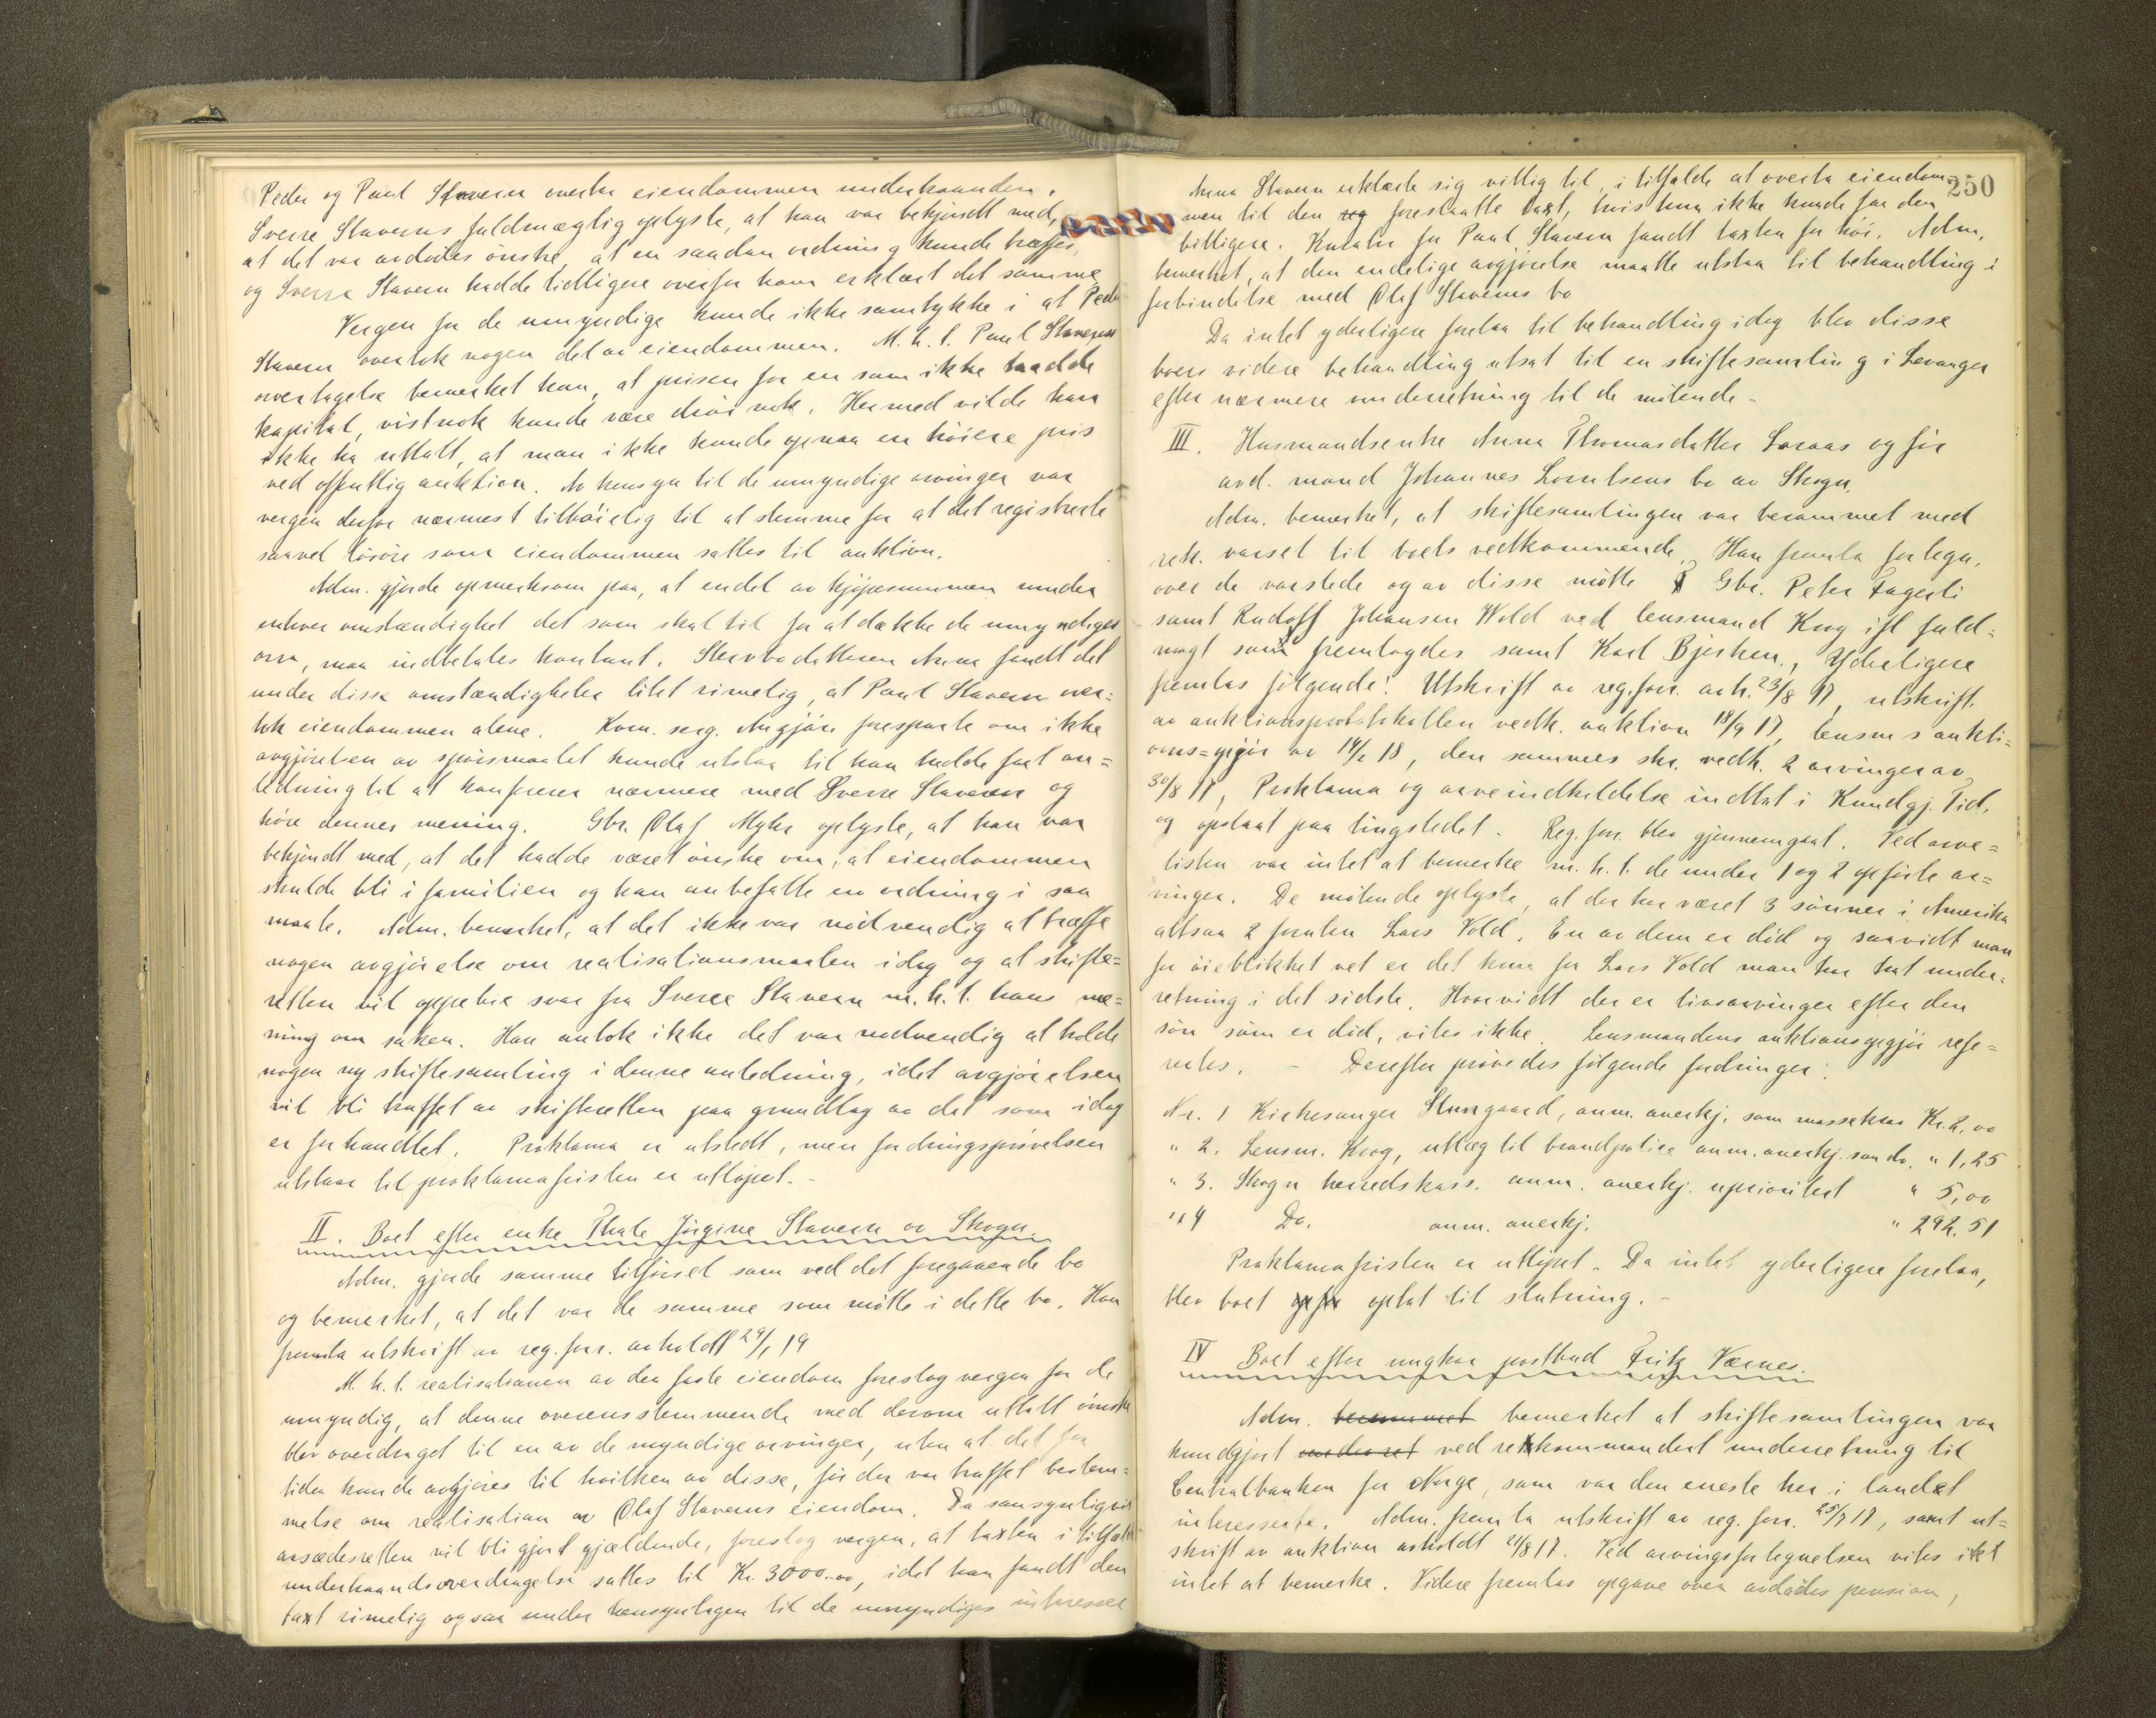 Peder og Paul Stavern overtar eiendommen underhaanden.
Sverre Staverns fuldmægtig oplyste, at han var bekjendt med,
at det var avdødes ønske, at en saadan ordning kunde træffes,
og Sverre Stavern hadde tidligere overfor ham erklært det samme
Vergen for de umyndige kunde ikke samtykke i at Peder
Stavern overtok nogen del av eiendommen. M. h. t. Paul Staverns
overtagelse bemerket han, at prisen for en som ikke hadde
kapital, vistnok kunde være drøi nok. Hermed vilde han
ikke ha uttalt, at man ikke kunde opnaa en høiere pris
ved offentlig auktion. Av hensyn til de umyndige arvinger var
vergen derfor nærmest tilbøielig til at stemme for at det registrerte
saavel løsøre som eiendommen sattes til auktion.
Adm. gjorde opmerksom paa, at endel av kjøpesummen under
enhver omstændighet det som skal til for at dække de umyndiges
arv, maa indbetales kontant. Stervbodatteren Anna fandt det
under disse omstændigheter litet rimelig, at Paul Stavern over=
tok eiendommen alene. Kom. serg. Augjær forespurte om ikke
avgjørelsen av spørsmaalet kunde utstaa til han hadde faat an=
ledning til at konferere nærmere med Sverre Stavern og
høre dennes mening. Gbr. Olaf Myhr oplyste, at han var
bekjendt med, at det hadde været ønske om, at eiendommen
skulde bli i familien og han anbefalte en ordning i saa
maate. Adm. bemerket, at det ikke var nødvendig at træffe
nogen avgjørelse om realisationsmaaten idag og at skifte=
retten vil oppebie svar fra Sverre Stavern m. h. t. hans me=
ning om saken. Han antok ikke det var nødvendig at holde
nogen ny skiftesamling i denne anledning, idet avgjørelsen
vil bli truffet av skifteretten paa grundlag av det som idag
er forhandlet. Proklama er utstedt, men fordringsprøvelsen
utstaar til proklamafristen er utløpet. -
II. Boet efter enke Thale Jørgine Stavern av Skogn.
Adm. gjorde samme tilførsel som ved det foregaaende bo
og bemerket, at det var de samme som møtte i dette bo. Han
fremla utskrift av reg. forr. avholdt 29/1 19
M. h. t. realisationen av den faste eiendom foreslog vergen for de
umyndig, at denne overensstemmende med derom uttalt ønske
blev overdraget til en av de myndige arvinger, uten at det for
tiden kunde avgjøres til hvilken av disse, før der var truffet bestem=
melse om realisation av Olaf Staverns eiendom. Da sansynligvis
aasædesretten vil bli gjort gjældende, foreslog vergen, at taxten i tilfælde
underhaandsoverdragelse sattes til Kr. 3000.00, idet han fandt den
taxt rimelig ogsaa under hensyntagen til de umyndiges interesser
250
Anna Stavern erklærte sig villig til, i tilfælde at overta eiendom=
men til den foreslaatte taxt, hvis hun ikke kunde faa den
billigere. Kurator for Paul Stavern fandt taxten for høi. Adm.
bemerket, at den endelige avgjørelse maatte utstaa til behandling i
forbindelse med Olaf Staverns bo
Da intet yderligere forelaa til behandling idag blev disse
boers videre behandling utsat til en skiftesamling i Levanger
efter nærmere underretning til de møtende -
III. Husmandsenke Anna Thomasdatter Loraas og før
avd. mand Johannes Lorntsens bo av Skogn.
Adm. bemerket, at skiftesamlingen var berammet med
rek. varsel til boets vedkommende. Han fremla fortegn.
over de varslede og av disse møtte Gbr. Peter Fagerli
samt Rudolf Johansen Wold ved lensmand Krog ifl. fuld=
magt som fremlagdes samt Karl Bjerken., Yderligere
fremlas følgende: Utskrift av reg.forr. avh. 23/8 17, utskrift
av auktionsprotokollen vedk. auktion 18/9 17, lensm s aukti=
ons=opgjør av 14/2 18, den sammes skr. vedk. 2 arvinger av
30/8 17, Proklama og arveindkaldelse indtat i Kundgj. Tid.
og opslaat paa tingstedet. Reg. forr. blev gjennemgaat. Ved arve=
listen var intet at bemerke m. h. t. de under 1 og 2 opførte ar=
vinger. De møtende oplyste, at der har været 3 sønner i Amerika
altsaa 2 foruten Lars Vold. En av dem er død og saavidt man
for øieblikket vet er det kun for Lars Vold man har hat under=
retning i det sidste. Hvorvidt der er livsarvinger efter den
søn som er død, vites ikke. Lensmandens auktionsopgjør refe=
reres. - Derefter prøvedes følgende fordringer:
Nr. 1 Kirkesanger Storgaard, anm. anerkj. som massekrav Kr. 2,00
" 2. Lensm. Krog, utlæg til brandpolice anm. anerkj. som do. " 1,25
" 3. Skogn herredskass. anm. anerkj. uprioritert " 5,00
" 4 Do. anm. anerkj. " 292.51
Proklamafristen er utløpet. Da intet yderligere forelaa,
blev boet optat til slutning. -
IV Boet efter ungkar postbud Fritz Værnes.
Adm. berammet bemerket at skiftesamlingen var
kundgjort ved rekkommandert underretning til
Centralbanken for Norge, som var den eneste her i landet
interesserte. Adm. fremla utskrift av reg. forr. 25/7 17, samt ut=
skrift av auktion avholdt 21/8 17. Ved arvingsfortegnelsen vites ikt
intet at bemerke. Videre fremlas opgave over avdødes pension,